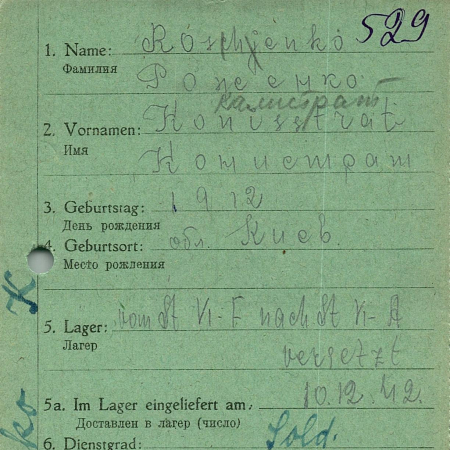 529
1. Name: Róschjenkó
Фамилия Роженко
Калистрат
2. Vornamen: Konisstrat
Имя Конистрат
3. Geburtstag: 1912
День рождения
4. Geburtsort: обл. Киев.
Место рожления
5. Lager: vom St VI-F nach St VI-A
Лагер versetzt
5a. Im Lager eingeliefert am: 10.12.42.
Доставлен в лагер (число)
6. Dienstgrad: Sold.